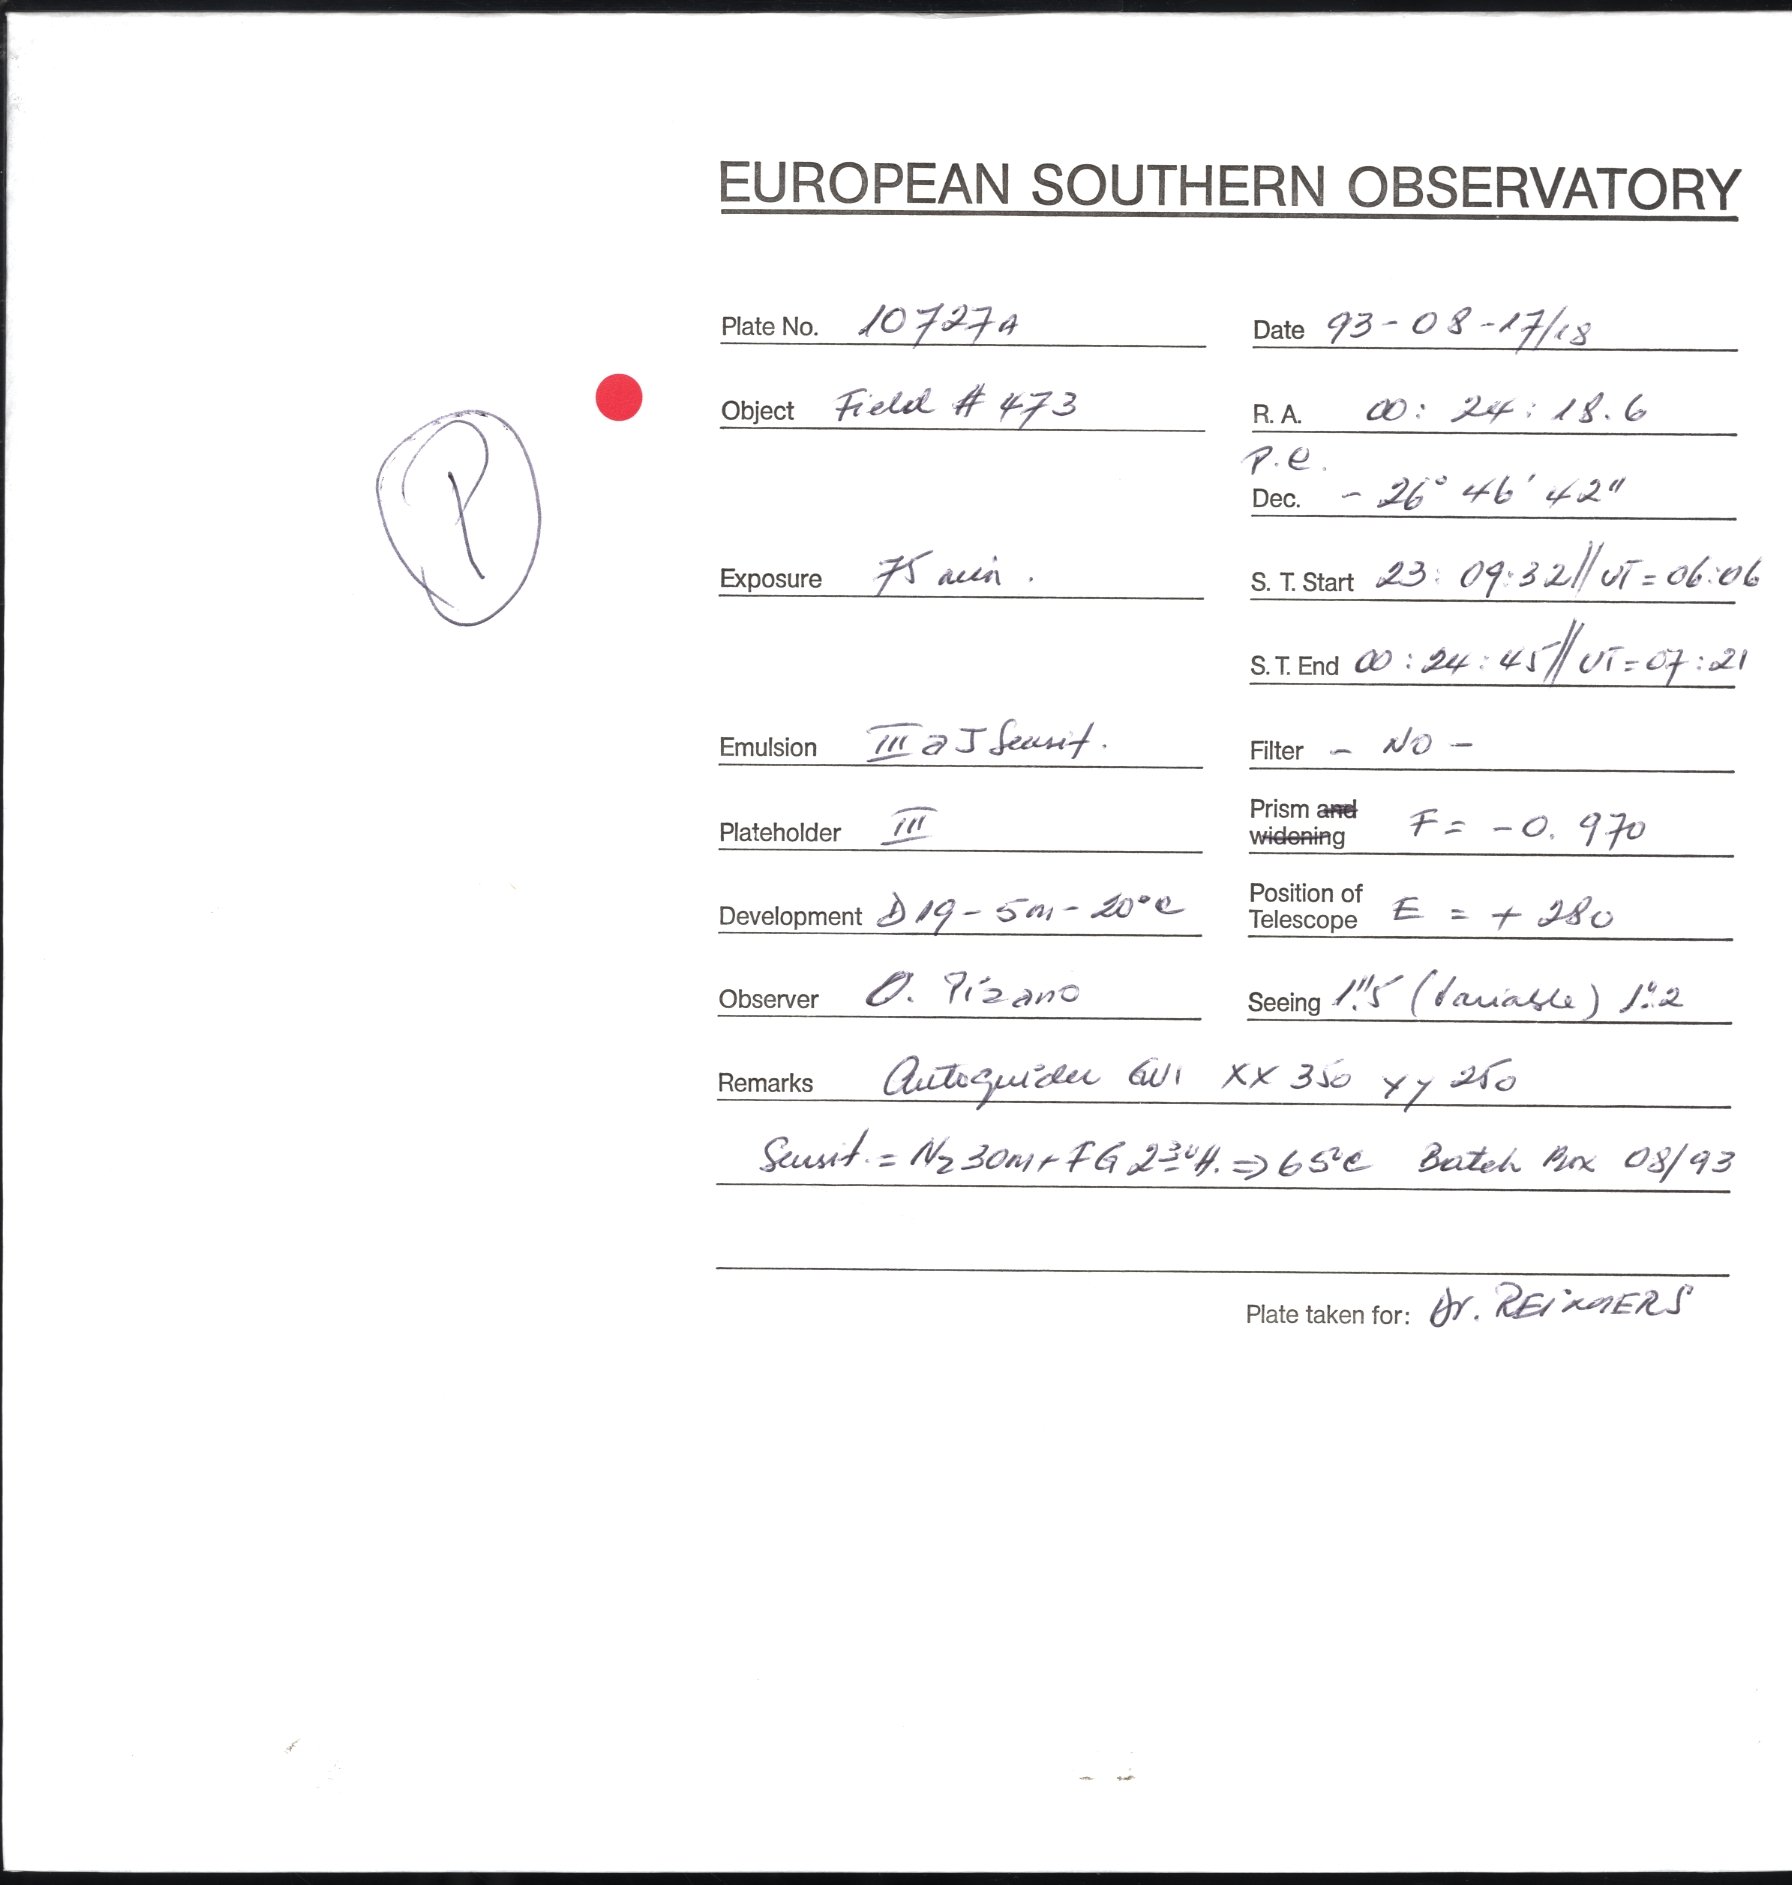 EUROPEAN SOUTHERN OBSERVATORY
Plate No. 10727A Date 93-08-17/18
Object Field # 473 R. A. 00: 24: 18.6
P
P.e.
Dec. - 26° 46' 42"
Exposure 75 min. S. T. Start 23: 09:32// UT = 06:06
S. T. End 00:24:45// UT=07:21
Emulsion III a J Sensit. Filter - NO -
Plateholder III Prism and widening F= -0.970
Development D19 - 5m - 20°C Position of Telescope E = + 280
Observer O. Pizano Seeing 1".5 (Variable) 1".2
Remarks Autoguider XX 350 YY 250
Sensit. = N2 30m + FG ⇒ 65°C Batch Box 08/93
Plate taken for: Dr. REIMERS